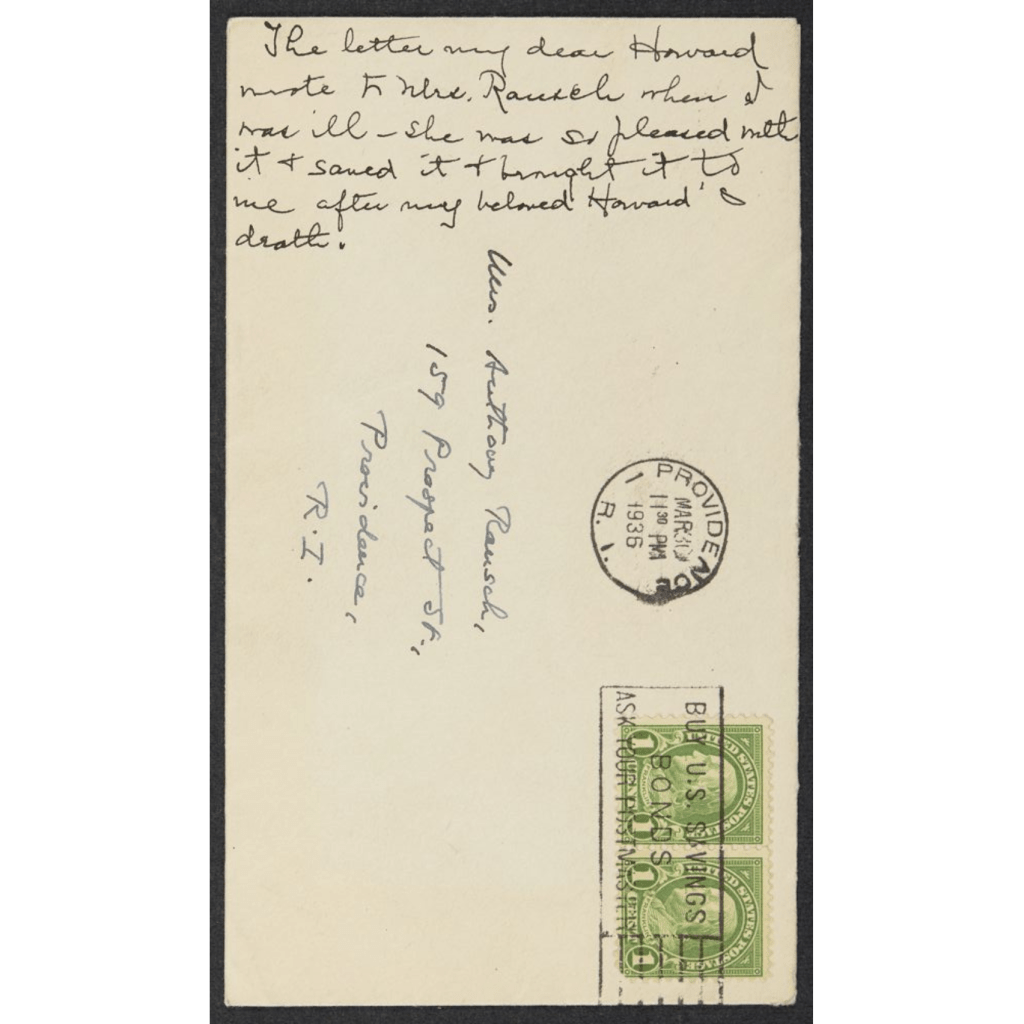 The letter my dear Howard
wrote to Mrs. Rausch when I
was ill – she was so pleased with
it & saved it & brought it to
me after my beloved Howard's
death.
Mrs. Anthony Rausch,
159 Prospect St.,
Providence,
R.I.
PROVIDENCE
MAR 30
11 30 PM
1936
R. I.
1
BUY U.S. SAVINGS
BONDS
ASK YOUR POSTMASTER
UNITED STATES POSTAGE
1 CENT 1
UNITED STATES POSTAGE
1 CENT 1